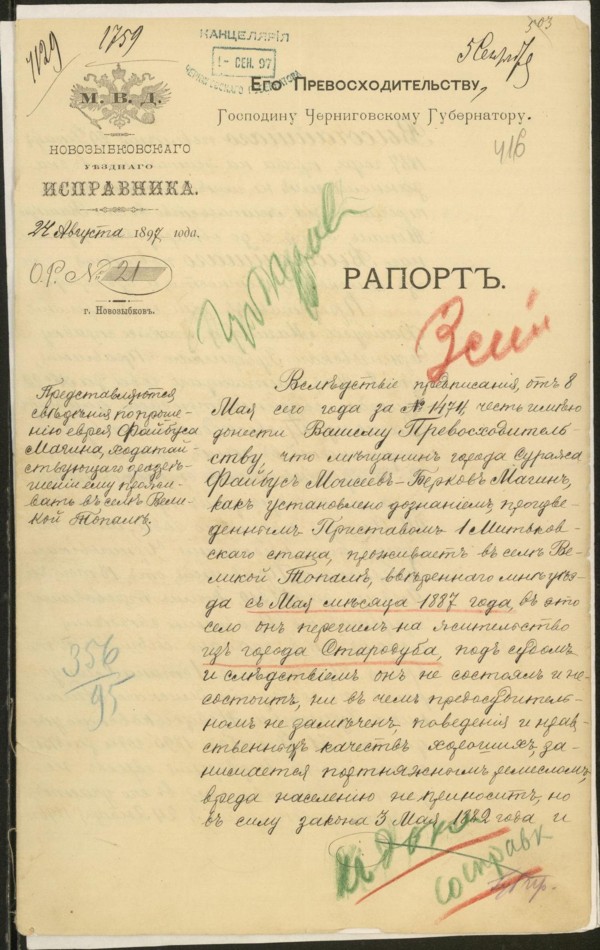 503
1129
1759
КАНЦЕЛЯРІЯ
1- СЕН. 97
ЧЕРНИГОВСКАГО ГУБЕРНАТОРА
М. В. Д.
НОВОЗЫБКОВСКАГО
УѢЗДНАГО
ИСПРАВНИКА.
24 Августа 1897 года.
О.Р. № 21
г. Новозыбковъ.
Его Превосходительству,
Господину Черниговскому Губернатору.
416
РАПОРТЪ.
Представляются
свѣдѣнія по проше-
нію еврея Файбуса
Магина, ходатай-
ствующаго о разрѣ-
шеніи ему прожи-
вать въ селѣ Вели-
кой Топали.
356
95
Вслѣдствіе предписанія, отъ 8
Мая сего года за № 1474, честь имѣю
донести Вашему Превосходитель-
ству, что мѣщанинъ города Суража
Файбусъ Моисеевъ-Берковъ Магинъ,
какъ установлено дознаніемъ, произве-
деннымъ Приставомъ 1 Митьков-
скаго стана, проживаетъ въ селѣ Ве-
ликой Топали, ввѣреннаго мнѣ уѣз-
да съ Мая мѣсяца 1887 года, въ это
село онъ перешелъ на жительство
изъ города Стародуба, подъ судомъ
и слѣдствіемъ онъ не состоялъ и не
состоитъ, ни въ чемъ предосудитель-
номъ не замѣченъ, поведенія и нрав-
ственныхъ качествъ хорошихъ, за-
нимается портняжнымъ ремесломъ,
вреда населенію не приноситъ, но
въ силу закона 3 Мая 1882 года и